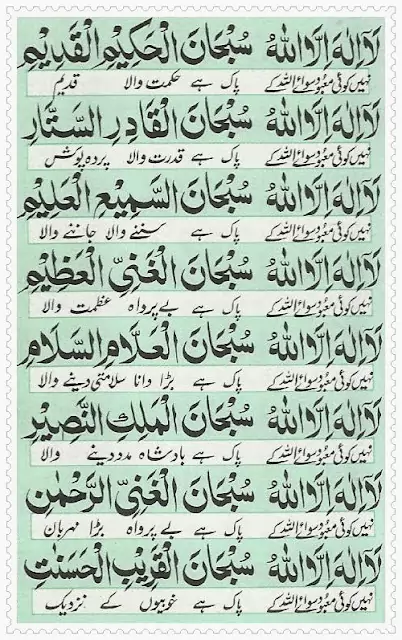 لَآ اِلٰهَ اِلَّا اللّٰهُ سُبْحَانَ الْحَكِيْمِ الْقَدِيْمِ
نہیں کوئی معبُود سوائے اللہ کے پاک ہے حکمت والا قدیم
لَآ اِلٰهَ اِلَّا اللّٰهُ سُبْحَانَ الْقَادِرِ السَّتَّارِ
نہیں کوئی معبُود سوائے اللہ کے پاک ہے قدرت والا پردہ پوش
لَآ اِلٰهَ اِلَّا اللّٰهُ سُبْحَانَ السَّمِيْعِ الْعَلِيْمِ
نہیں کوئی معبُود سوائے اللہ کے پاک ہے سننے والا جاننے والا
لَآ اِلٰهَ اِلَّا اللّٰهُ سُبْحَانَ الْغَنِيِّ الْعَظِيْمِ
نہیں کوئی معبُود سوائے اللہ کے پاک ہے بے پرواہ عظمت والا
لَآ اِلٰهَ اِلَّا اللّٰهُ سُبْحَانَ الْعَلَّامِ السَّلَامِ
نہیں کوئی معبُود سوائے اللہ کے پاک ہے بڑا دانا سلامتی دینے والا
لَآ اِلٰهَ اِلَّا اللّٰهُ سُبْحَانَ الْمَلِكِ النَّصِيْرِ
نہیں کوئی معبُود سوائے اللہ کے پاک ہے بادشاہ مدد دینے والا
لَآ اِلٰهَ اِلَّا اللّٰهُ سُبْحَانَ الْغَنِيِّ الرَّحْمٰنِ
نہیں کوئی معبُود سوائے اللہ کے پاک ہے بے پرواہ بڑا مہربان
لَآ اِلٰهَ اِلَّا اللّٰهُ سُبْحَانَ الْقَرِيْبِ الْحَسَنٰتِ
نہیں کوئی معبُود سوائے اللہ کے پاک ہے خوبیوں کے نزدیک